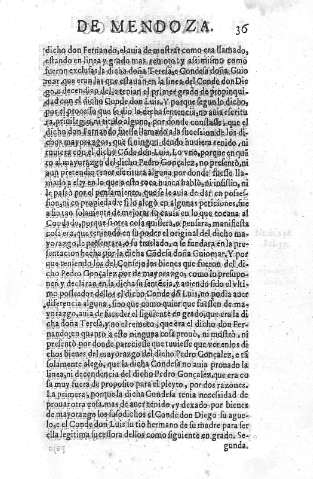 DE MENDOZA. 36
dicho don Fernando, el auia de mostrar como era llamado,
estando en linea y grado mas remoto, y assimismo como
fueron exclusas la dicha doña Teresa, e Condesa doña Guio
mar, que eran las que estauan en la linea del Conde don Die
go, e decendian del e tenian el primer grado de propinqui-
dad con el dicho Conde don Luis. Y porque segun lo dicho,
por el processo que se dio la dicha sentencia, no auia escritu
ra, priuilegio, ni titulo alguno, por donde constasse, que el
dicho don Fernando fuesse llamado a la succession de los di-
chos mayorazgos, que si ningun deudo huuiera tenido, ni
tuuiera con el dicho Conde don Luis. Lo vno, porque en quā
to al mayorazgo del dicho Pedro Gonçalez, no presentó, ni
aun pretendio tener escritura alguna por donde fuesse lla-
mado a el, y en lo que a esto toca nunca habló, ni insistio, ni
le passó por el pensamiento, que se le auia de dar en posses-
sion, ni en propiedad e si lo alegó en algunas peticiones, fue
a
Condado, porque si otra cosa quisiera, o pensara, manifiesta
cosa era, que teniendo en su poder el original del dicho ma-
yorazgo, lo presentara, o su traslado, o se fundara en la pre-
sentacion hecha por la dicha Condesa doña Guiomar, Y por
que teniendo los del Consejo los bienes que fueron del di-
cho Pedro Gonçalez por de mayorazgo, como lo presupo-
nen y declaran en la dicha sentencia, y auiendo sido el vlti-
mo posseedor dellos el dicho Conde dō Luis, no podia auer
diferencia alguna, sino que quienquier que fuessen de ma-
yorazgo, auia de suceder el siguiente en grado, que era la di
cha doña Teresa, y no el remoto, que era el dicho don Fer-
nando, en quanto a esto ninguna cosa prouó, ni mostró, ni
presentó por donde pareciesse que tuuiesse que ver en los di
chos bienes del mayorazgo del dicho Pedro Gonçalez, e tā
solamente alegó, que la dicha Condesa no auia prouado la
linea, ni decendencia del dicho Pedro Gonçalez, que era co
sa muy fuera de proposito para el pleyto, por dos razones.
La primera, porque la dicha Condesa no tenia necessidad de
prouar otra cosa, mas de auer tenido, y dexado por bienes
de mayorazgo los susodichos el Conde don Diego su ague-
lo, e el Conde don Luis su tio hermano de su madre para ser
ella legitima sucessora dellos como siguiente en grado. Se-
gunda.